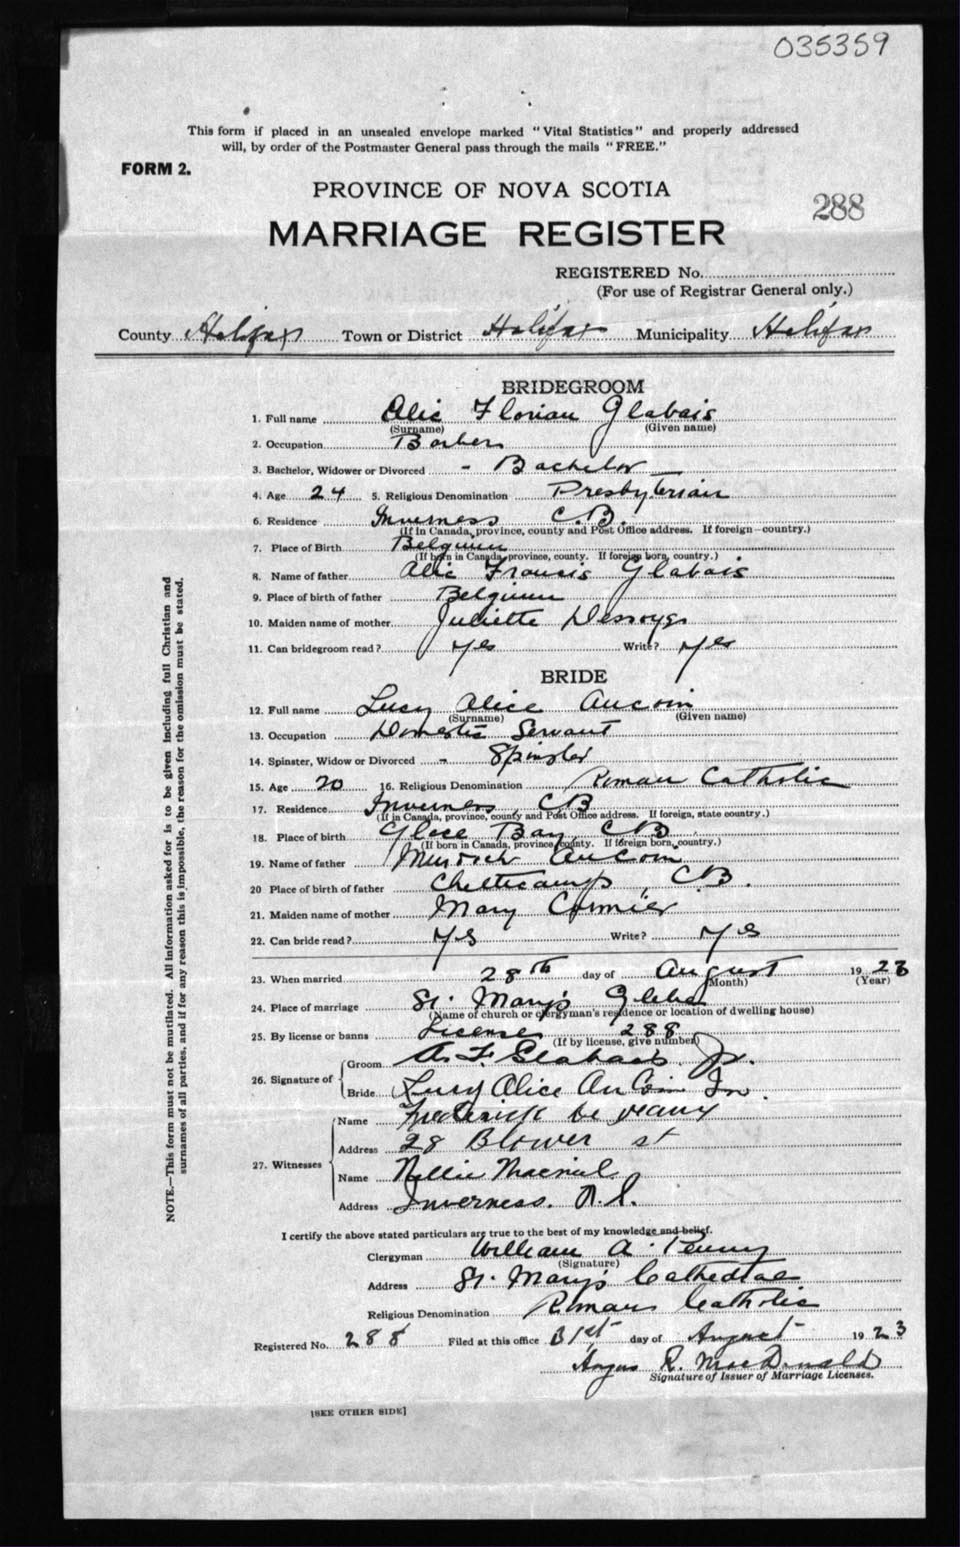 035359
This form if placed in an unsealed envelope marked "Vital Statistics" and properly addressed
will, by order of the Postmaster General pass through the mails "FREE."
FORM 2.
PROVINCE OF NOVA SCOTIA
288
MARRIAGE REGISTER
REGISTERED No.
(For use of Registrar General only.)
County Halifax Town or District Halifax Municipality Halifax
BRIDEGROOM
1. Full name Alic Florian Glabais
(Surname) (Given name)
2. Occupation Barber
3. Bachelor, Widower or Divorced - Bachelor
4. Age 24 5. Religious Denomination Presbyterian
6. Residence Inverness C.B.
(If in Canada, province, county and Post Office address. If foreign country.)
7. Place of Birth Belgium
(If born in Canada, province, county. If foreign born, country.)
8. Name of father Alic Francis Glabais
9. Place of birth of father Belgium
10. Maiden name of mother Juliette
11. Can bridegroom read? Yes Write? Yes
BRIDE
12. Full name Lucy Alice Aucoin
(Surname) (Given name)
13. Occupation Domestic Servant
14. Spinster, Widow or Divorced - Spinster
15. Age 20 16. Religious Denomination Roman Catholic
17. Residence Inverness, CB
(If in Canada, province, county and Post Office address. If foreign, state country.)
18. Place of birth Glace Bay, CB
(If born in Canada, province, county. If foreign born, country.)
19. Name of father Murdoch Aucoin
20 Place of birth of father Chetticamp, C.B.
21. Maiden name of mother Mary Cormier
22. Can bride read? Yes Write? Yes
23. When married 28th day of August 1923
(Month) (Year)
24. Place of marriage St. Mary's Glebe
(Name of church or clergyman's residence or location of dwelling house)
25. By license or banns License 288
(If by license, give number)
26. Signature of
Groom A. F. Glabais Jr.
Bride Lucy Alice AuCoin
27. Witnesses
Name Frederick
Address 28 Blower st
Name Nellie Macneil
Address Inverness. N.S.
I certify the above stated particulars are true to the best of my knowledge and belief.
Clergyman William A. Penny
(Signature)
Address St. Mary's Cathedral
Religious Denomination Roman Catholic
Registered No. 288 Filed at this office 31st day of August 1923
Angus R. MacDonald
Signature of Issuer of Marriage Licenses.
[SEE OTHER SIDE]
NOTE.—This form must not be mutilated. All information asked for is to be given including full Christian and
surnames of all parties, and if for any reason this is impossible, the reason for the omission must be stated.